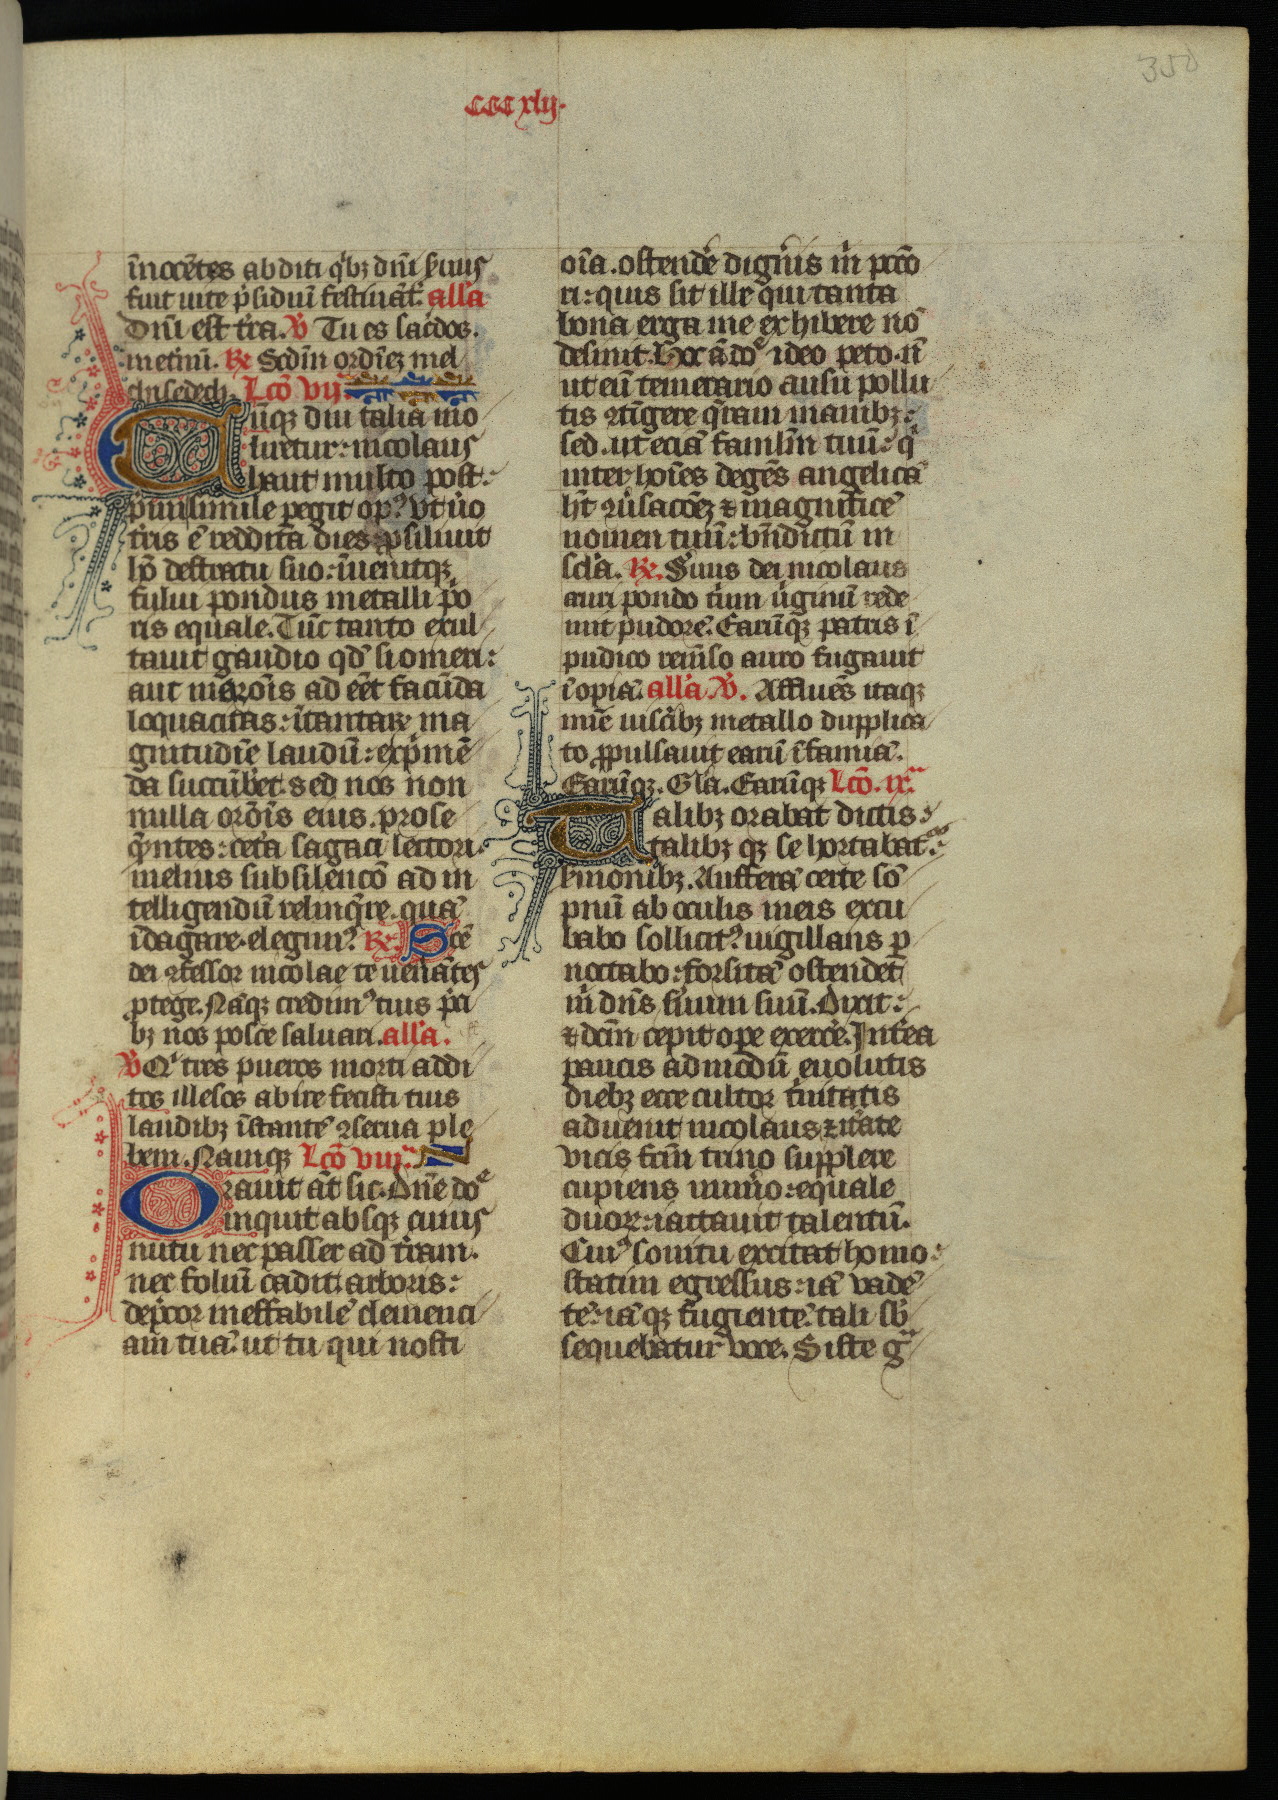 350
ccc xlij.
īnocētes abditi qͥbꝫ diuī ẜuus
fuit uite p̄sidiuī festinās̄ all'a
Dn̄i est t'ra. ℣ Tu es sac'dos.
inetnū. ℟ Sedm̄ ordinē mel
chisedech. Lcō vij.
Cūqꝫ diu talia mo
liretur: nicolaus
haut multo post:
p̄mi simile pegit opꝰ vt uͦo
t'ris ē reddita dies: psiliuit
hō de stratu suo: īuenitqꝫ
fului pondus metalli pͥo
ris equale. Tūc tanto exul
tauit gaudio qd̄ si omeri:
aut maronis adēēt facūda
loquacitas: ītantaꝝ ma
gnitudīe laudū: exp̄mē
da succūb'et. sed nos non
nulla orōis eius. prose
q̄ntes: cet'a sagaci lectori
melius sub silencō ad in
telligendū relinq̄re. quā
īdagare. elegimꝰ ℟ Scē
dei ꝯfessor nicolae te uen'ātes
ꝓtege. Nāqꝫ credimꝰ tuis p̄ci
bꝫ nos posce saluari. all'a.
℣ Qͥ tres pueros morti addi
tos illesos abire fecisti tuis
laudibꝫ īstantē ꝯserua ple
bem. Namqꝫ Lcō viij.
Orauit āt sic. Dn̄e doͤ
inquit absqꝫ cuius
nutu nec passer ad t'ram.
nec foliuī cadit arboris:
dep̄cor ineffabilē clemenci
am tuā. ut tu qui nosti
oīa. ostend'e digneris m̄ pccō
ri: quis sit ille qui tanta
bona erga me exhibere nō
desinit. Hoc ā doͤ ideo peto. n̄
ut eū temerario ausu pollu
tis ꝯtīgere q̄ram manibꝫ:
sed. ut eciā famlm̄ tuū: qͥ
inter hoīes degēs angelicā
h̄t ꝯūsacōeꝫ ⁊ magnifice
nomen tuū: bn̄dictū in
scl'a. ℟. S'uus dei nicolaus
auri pondo t'um ūginū rede
mit pudorē. Earūqꝫ patris ī
pudico remīso auro fugauit
īopiā. all'a. ℣. Affluēs itaqꝫ
mīe uisc'ibꝫ metallo dupplica
to ꝓpulsauit earū īfamiā.
Earūqꝫ. Gl'a. Earūqꝫ Lcō. ix.
Talibꝫ orabat dictis:
talibꝫ qꝫ se hortabat
ẜmonibꝫ. Aufferā certe sō
pnū ab oculis meis excu
babo sollicitꝰ uigillans p
noctabo: forsitā ostendet
m̄ dn̄s s'uum suū. Dixit:
⁊ dcm̄ cepit ope exerc'e. Int'ea
paucis admodū euolutis
diebꝫ ecce cultor t'nitatis
aduenit nicolaus ⁊ it'ate
vicis fcm̄ trino supplere
cupiens num'o: equale
duoꝝ: iactauit talentū.
Cuiꝰ sonitu excitat homo:
statim egressus: iā vadē
tē: iāqꝫ fugientē. tali sb
sequebatur voce. Siste g